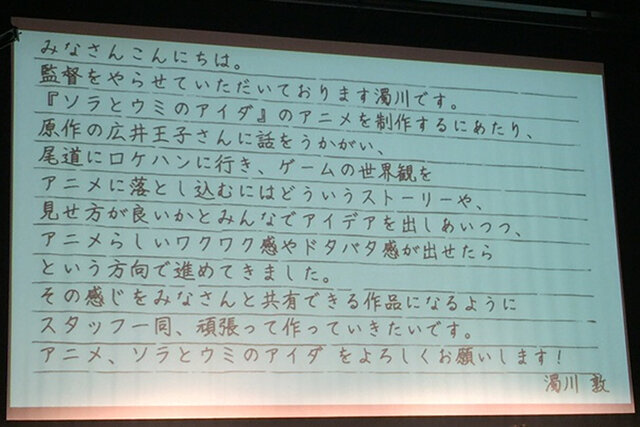 みなさんこんにちは。
監督をやらせていただいております濁川です。
『ソラとウミのアイダ』のアニメを制作するにあたり、
原作の広井王子さんに話をうかがい、
尾道にロケハンに行き、ゲームの世界観を
アニメに落とし込むにはどういうストーリーや、
見せ方が良いかとみんなでアイデアを出しあいつつ、
アニメらしいワクワク感やドタバタ感が出せたら
という方向で進めてきました。
その感じをみなさんと共有できる作品になるように
スタッフ一同、頑張って作っていきたいです。
アニメ、ソラとウミのアイダ をよろしくお願いします!
濁川 敦